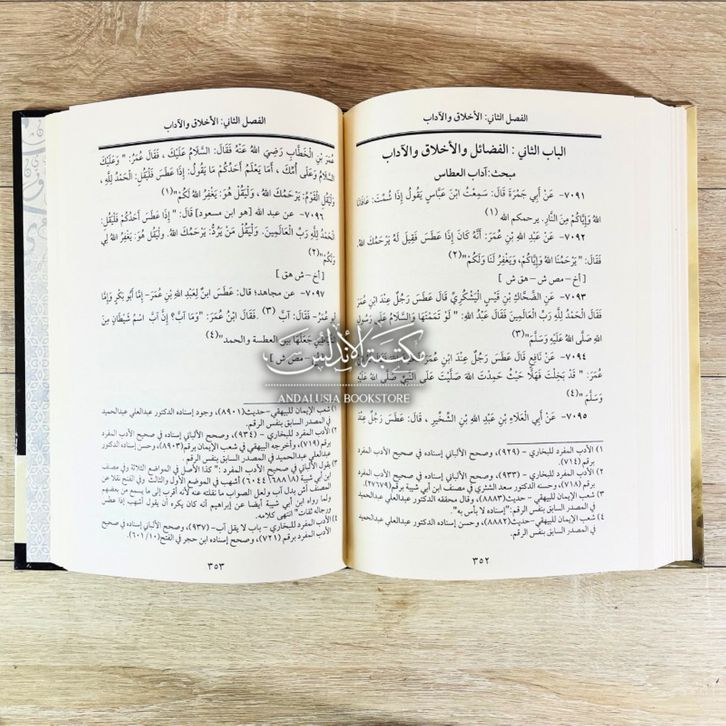 الفصل الثاني: الأخلاق والآداب
الباب الثاني : الفضائل والأخلاق والآداب
مبحث: آداب العطاس
٧٠٩١- عَنْ أَبِي جَمْرَةَ قَالَ: سَمِعْتُ ابْنَ عَبَّاسٍ يَقُولُ إِذَا شُمِّتَ: عَافَانَا
اللهُ وَإِيَّاكُمْ مِنَ النَّارِ. يرحمكم الله (١)
٧٠٩٢- عَنْ عَبْدِ اللهِ بْنِ عُمَرَ: أَنَّهُ كَانَ إِذَا عَطَسَ فَقِيلَ لَهُ يَرْحَمُكَ اللهُ.
فَقَالَ: "يَرْحَمُنَا اللهُ وَإِيَّاكُمْ، وَيَغْفِرُ لَنَا وَلَكُمْ"(٢)
[ أخ – مص ش – هق ش ]
٧٠٩٣- عَنِ الضَّحَّاكِ بْنِ قَيْسٍ الْيَشْكُرِيِّ قَالَ عَطَسَ رَجُلٌ عِنْدَ ابْنِ عُمَرَ
فَقَالَ الْحَمْدُ لِلَّهِ رَبِّ الْعَالَمِينَ فَقَالَ عَبْدُ اللهِ: " لَوْ تَمَّمْتَهَا وَالسَّلَامُ عَلَى رَسُولِ
اللهِ صَلَّى اللهُ عَلَيْهِ وَسَلَّمَ"(٣)
٧٠٩٤- عَنْ نَافِعٍ قَالَ عَطَسَ رَجُلٌ عِنْدَ ابْنِ عُمَرَ
عُمَرَ: " قَدْ بَخِلْتَ فَهَلَّا حَيْثُ حَمِدْتَ اللهَ صَلَّيْتَ عَلَى النَّبِيِّ صَلَّى اللهُ عَلَيْهِ
وَسَلَّمَ"(٤)
٧٠٩٥- عَنْ أَبِي الْعَلَاءِ بْنِ عَبْدِ اللهِ بْنِ الشِّخِّيرِ ، قَالَ: عَطَسَ رَجُلٌ عِنْدَ
١) الأدب المفرد للبخاري – (٩٢٩)، وصحح الألباني إسناده في صحيح الأدب المفرد
برقم (٧١٤).
٢) الأدب المفرد للبخاري – (٩٣٣)، وصحح الألباني إسناده في صحيح الأدب المفرد
برقم (٧١٨)، وحسنه الدكتور سعد الشثري في مصنف ابن أبي شيبة برقم (٢٧١٧٩)
٣) شعب الإيمان للبيهقي –حديث(٨٨٨٣)، وقال محققه الدكتور عبدالعلي عبدالحميد
في المصدر السابق بنفس الرقم: "إسناده لا بأس به".
٤) شعب الإيمان للبيهقي –حديث(٨٨٨٢)، وحسن إسناده الدكتور عبدالعلي عبدالحميد
في المصدر السابق بنفس الرقم.
٣٥٢
الفصل الثاني: الأخلاق والآداب
عُمَرَ بْنِ الْخَطَّابِ رَضِيَ اللهُ عَنْهُ فَقَالَ: السَّلَامُ عَلَيْكَ ، فَقَالَ عُمَرُ: " وَعَلَيْكَ
السَّلَامُ وَعَلَى أُمِّكَ ، أَمَا يَعْلَمُ أَحَدُكُمْ مَا يَقُولُ: إِذَا عَطَسَ فَلْيَقُلِ: الْحَمْدُ لِلَّهِ ،
وَلْيَقُلِ الْقَوْمُ: يَرْحَمُكَ اللهُ ، وَلْيَقُلْ هُوَ: يَغْفِرُ اللهُ لَكُمْ"(١)
٧٠٩٦- عن عبد الله [هو ابن مسعود] قَالَ: " إِذَا عَطَسَ أَحَدُكُمْ فَلْيَقُلِ:
الْحَمْدُ لِلَّهِ رَبِّ الْعَالَمِينَ. وَلْيَقُلْ مَنْ يَرُدُّ: يَرْحَمُكَ اللهُ. وليقُل هُوَ: يَغْفِرُ اللهُ لِي
وَلَكُمْ"(٢)
[ أخ – ش هق ]
٧٠٩٧- عن مجاهد؛ قال: عَطَسَ ابنٌ لِعَبدِ اللهِ بنِ عُمَرَ- إمَّا أَبُو بَكْرٍ وَإِمَّا
عُمَرُ- فَقَالَ: آبَّ (٣) .فَقَالَ ابْنُ عُمَرَ: "وَمَا آبَّ؟ إِنَّ آبَّ اسْمُ شَيْطَانٍ مِنَ
جَعَلَهَا بين العطسة والحمد"(٤)
مص ش ]
١) شعب الإيمان للبيهقي –حديث(٨٩٠١)، وجود إسناده الدكتور عبدالعلي عبدالحميد
في المصدر السابق بنفس الرقم.
٢) الأدب المفرد للبخاري – (٩٣٤)، وصحح الألباني إسناده في صحيح الأدب المفرد
برقم (٧١٩)، وأخرجه البيهقي في شعب الإيمان برقم(٨٩٠٣)، وحسن إسناده الدكتور
عبدالعلي عبدالحميد في المصدر السابق بنفس الرقم.
٣) يقول الألباني في صحيح الأدب المفرد :" كذا الأصل في المواضع الثلاثة وفي مصنف
ابن أبي شيبة (٦٨٨١٨ ٦٠٤٤) أشهب في الموضع الأول والثالث. وفي الفتح نقلا عن
المصنف أش بدل آب ولعل الصواب ما نقلته عنه لأنه أقرب إلى ما يسمع من بعضهم
ولما رواه ابن أبي شيبة أيضا عن إبراهيم أنه كان يكره أن يقول أشهب إذا عطس
ورجاله ثقات" انتهى كلامه.
٤) الأدب المفرد للبخاري – باب لا يقل آب– (٩٣٧)، وصحح الألباني إسناده في صحيح
الأدب المفرد برقم (٧٢١)، وصحح إسناده ابن حجر في الفتح(٦٠١/١٠).
٣٥٣
مكتبة الأندلس
ANDALUSIA BOOKSTORE